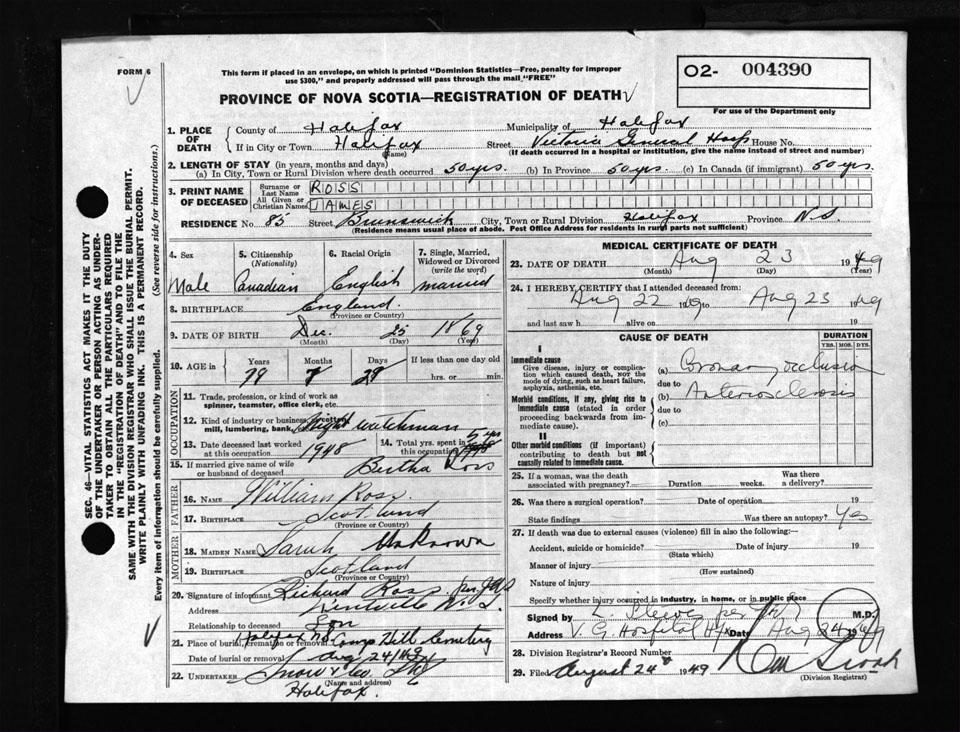 FORM 6
This form if placed in an envelope, on which is printed "Dominion Statistics—Free, penalty for improper
use $300," and properly addressed will pass through the mail "FREE"
PROVINCE OF NOVA SCOTIA—REGISTRATION OF DEATH
02- 004390
For use of the Department only
SEC. 46—VITAL STATISTICS ACT MAKES IT THE DUTY
OF THE UNDERTAKER OR PERSON ACTING AS UNDER-
TAKER TO OBTAIN ALL THE PARTICULARS REQUIRED
IN THE "REGISTRATION OF DEATH" AND TO FILE THE
SAME WITH THE DIVISION REGISTRAR WHO SHALL ISSUE THE BURIAL PERMIT.
WRITE PLAINLY WITH UNFADING INK. THIS IS A PERMANENT RECORD.
Every item of information should be carefully supplied. (See reverse side for instructions.)
1. PLACE OF DEATH County of Halifax Municipality of Halifax
If in City or Town Halifax (Name) Street Victoria General Hosp House No.
(If death occurred in a hospital or institution, give the name instead of street and number)
2. LENGTH OF STAY (in years, months and days)
(a) In City, Town or Rural Division where death occurred 50 yrs. (b) In Province 50 yrs. (c) In Canada (if immigrant) 50 yrs.
3. PRINT NAME OF DECEASED Surname or Last Name ROSS
All Given or Christian Names JAMES
RESIDENCE No. 85 Street Brunswick City, Town or Rural Division Halifax Province N S
(Residence means usual place of abode. Post Office Address for residents in rural parts not sufficient)
4. Sex 5. Citizenship (Nationality) 6. Racial Origin 7. Single, Married, Widowed or Divorced (write the word)
Male Canadian English married
8. BIRTHPLACE England
(Province or Country)
9. DATE OF BIRTH Dec. 25 1869
(Month) (Day) (Year)
10. AGE in Years Months Days If less than one day old
79 7 29 hrs. or min.
OCCUPATION
11. Trade, profession, or kind of work as
spinner, teamster, office clerk, etc.
12. Kind of industry or business, mill, lumbering, bank, Night watchman
13. Date deceased last worked at this occupation 1948 14. Total yrs. spent in this occupation 5 yrs
15. If married give name of wife or husband of deceased Bertha Ross
FATHER
16. NAME William Ross
17. BIRTHPLACE Scotland
(Province or Country)
MOTHER
18. MAIDEN NAME Sarah Unknown
19. BIRTHPLACE Scotland
(Province or Country)
20. Signature of informant Richard Ross
Address N. S.
Relationship to deceased Son
21. Place of burial, cremation or removal Halifax NS Camp Hill Cemetery
Date of burial or removal Aug 24/49
22. UNDERTAKER Snow & Co.
(Name and address)
Halifax.
MEDICAL CERTIFICATE OF DEATH
23. DATE OF DEATH Aug 23 1949
(Month) (Day) (Year)
24. I HEREBY CERTIFY that I attended deceased from:
Aug 22 1949 to Aug 23 1949
and last saw h alive on 19
CAUSE OF DEATH DURATION
YRS. MOS. DYS.
I
Immediate cause
Give disease, injury or complica-
tion which caused death, not the
mode of dying, such as heart failure,
asphyxia, asthenia, etc.
(a) Coronary occlusion
due to
Morbid conditions, if any, giving rise to
immediate cause (stated in order
proceeding backwards from im-
mediate cause).
(b) Arteriosclerosis
due to
(c)
II
Other morbid conditions (if important)
contributing to death but not
causally related to immediate cause.
25. If a woman, was the death associated with pregnancy? Duration weeks. Was there a delivery?
26. Was there a surgical operation? Date of operation 19
State findings Was there an autopsy? Yes
27. If death was due to external causes (violence) fill in also the following:
Accident, suicide or homicide? Date of injury 19
(State which)
Manner of injury
(How sustained)
Nature of injury
Specify whether injury occurred in industry, in home, or in public place
Signed by M.D.
Address V. G. Hospital Hfx Date Aug 24 1949
28. Division Registrar's Record Number
29. Filed August 24 1949
(Division Registrar)